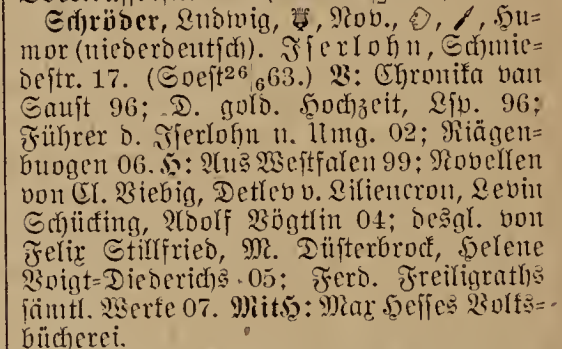 Schröder, Ludwig, Nov., Hu=
mor (niederdeutsch). Iserlohn, Schmie=
destr. 17. (Soest 26/6 63.) V: Chronika van
Saust 96; D. gold. Hochzeit, Lsp. 96;
Führer d. Iserlohn u. Umg. 02; Riägen=
buogen 06. H: Aus Westfalen 99; Novellen
von Cl. Viebig, Detlev v. Liliencron, Levin
Schücking, Adolf Vögtlin 04; desgl. von
Felix Stillfried, M. Düsterbrock, Helene
Voigt=Diederichs 05; Ferd. Freiligraths
sämtl. Werke 07. MitH: Max Hesses Volks=
bücherei.